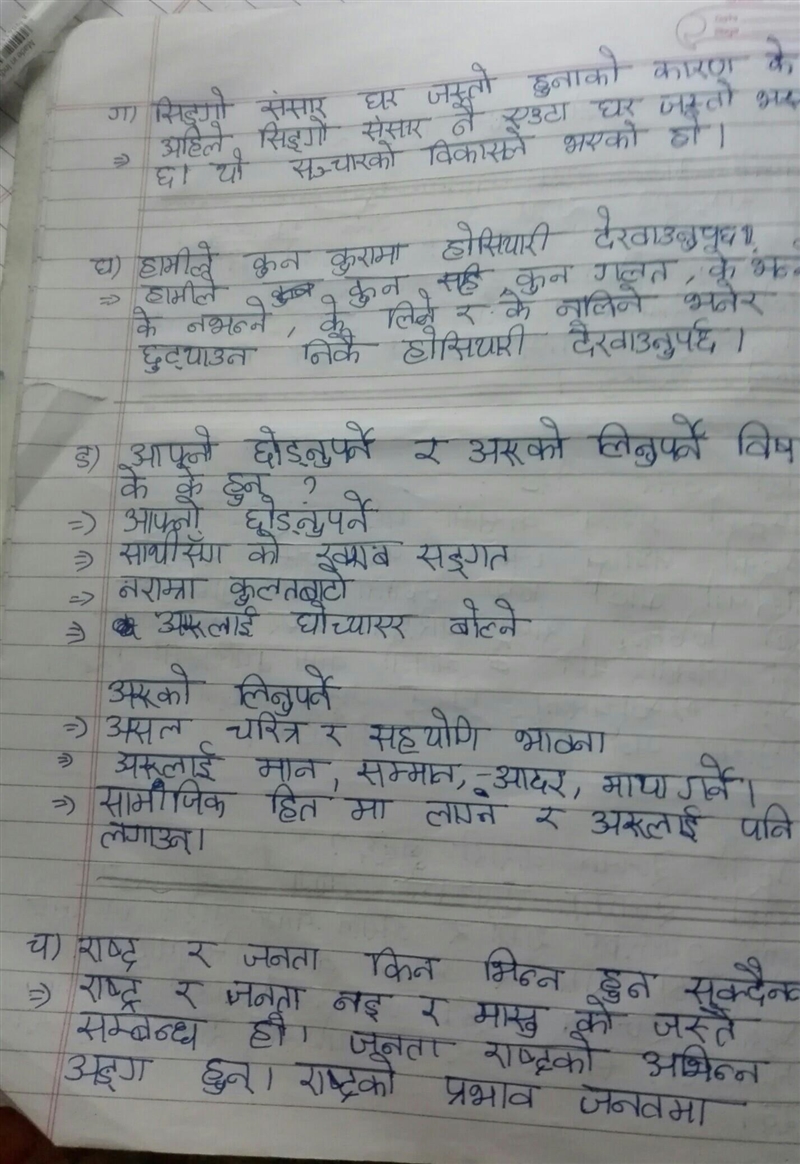 ग) सिङ्गो संसार घर जस्तो हुनाको कारण के
⇒ अहिले सिङ्गो संसार नै एउटा घर जस्तो भए
छ। यो सञ्चारको विकासले भएको हो।
घ) हामीले कुन कुरामा होसियारी देखाउनुपर्छ।
⇒ हामीले कुन सही, कुन गलत, के भन्
के नभन्ने, के लिने र के नलिने भनेर
छुट्याउन निकै होसियारी देखाउनुपर्छ।
ङ) आफ्नो छोड्नुपर्ने र अरूको लिनुपर्ने विष
के के हुन् ?
⇒ आफ्नो छोड्नुपर्ने
⇒ साथीसँग को खराब सङ्गत
⇒ नराम्रा कुलतबाटो
⇒ अरूलाई घोच्यारर बोल्ने
अरूको लिनुपर्ने
⇒ असल चरित्र र सहयोगि भावना
⇒ अरूलाई मान, सम्मान, आदर, माया गर्ने।
⇒ सामाजिक हित मा लाग्न र अरूलाई पनि
लगाउन।
च) राष्ट्र र जनता किन भिन्न हुन सक्दैनन
⇒ राष्ट्र र जनता नङ र मासु को जस्तै
सम्बन्ध हो। जनता राष्ट्रको अभिन्न
अङ्ग हुन्। राष्ट्रको प्रभाव जनतमा